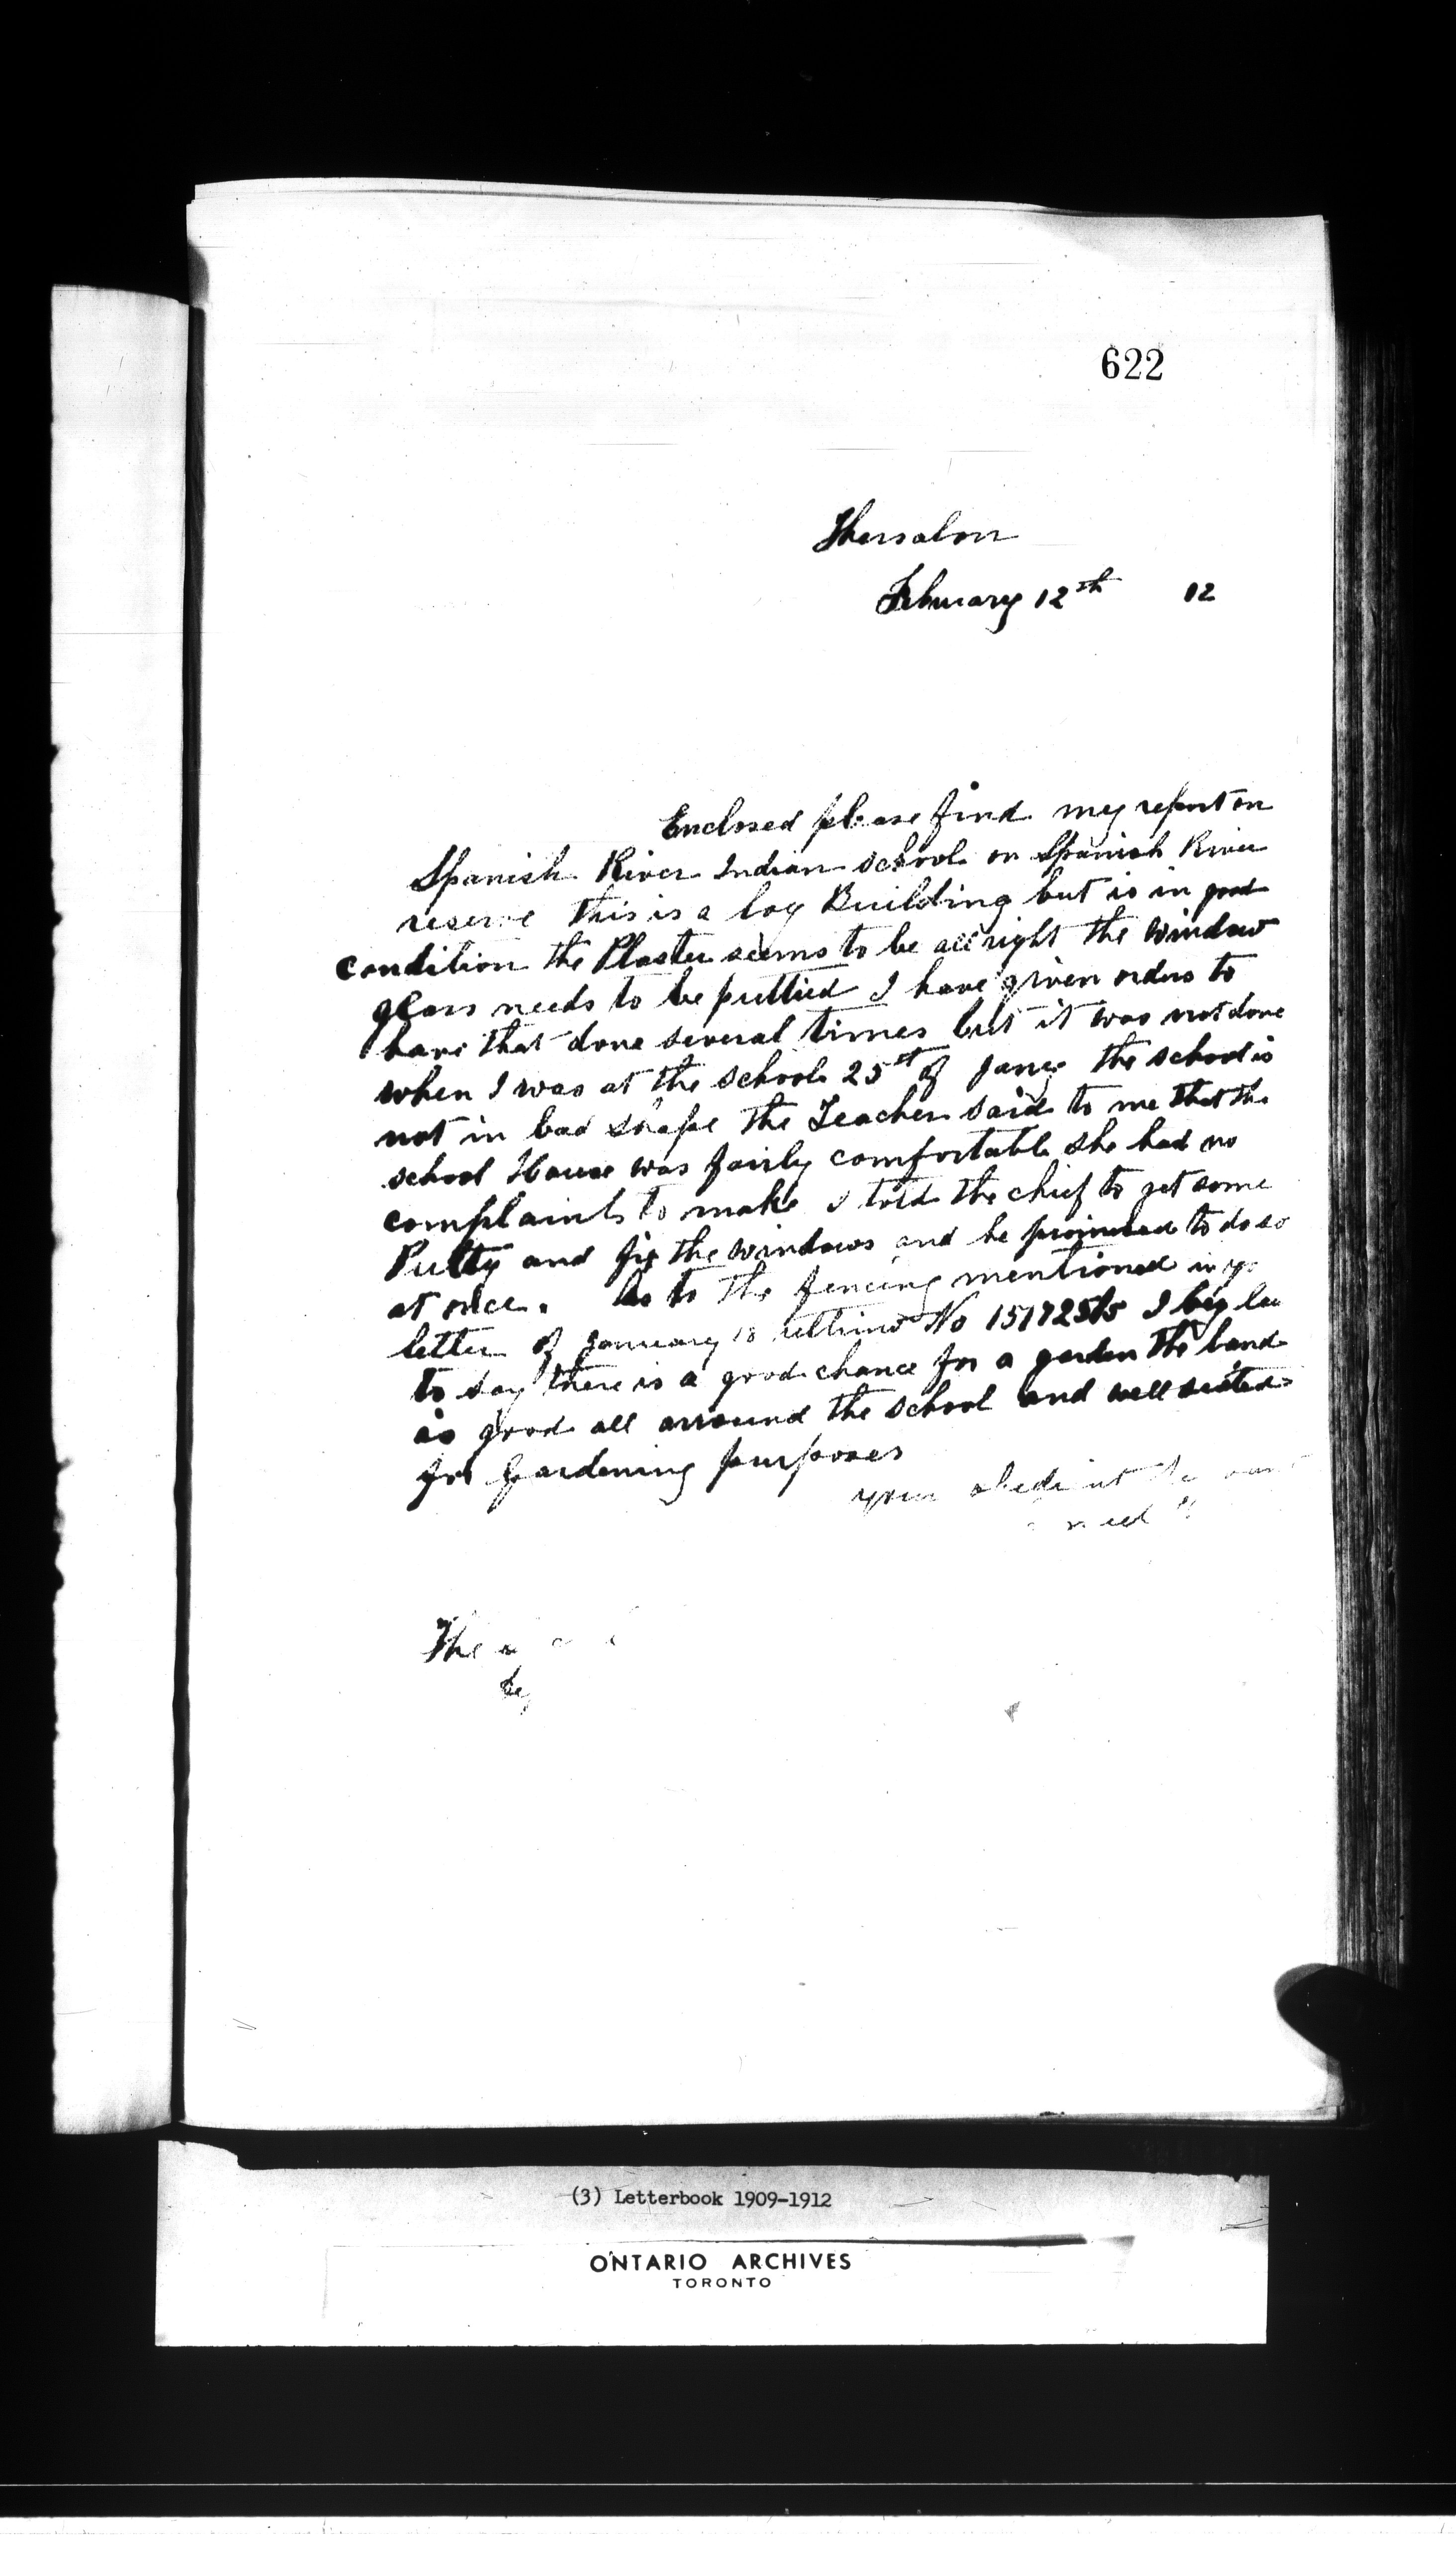 622
Thessalon
February 12th 12
Enclosed please find my report on
Spanish River Indian school on Spanish River
reserve this is a log Building but is in good
condition the Plaster seems to be all right the window
glass needs to be puttied I have given orders to
have that done several times but it was not done
when I was at the school 25st of Jany the school is
not in bad shape the Teacher said to me that the
school House was fairly comfortable she had no
complaints to make I told the chief to get some
Putty and fix the windows and he promised to do so
at once. As to the fencing mentioned in yo
letter of January 18 No I beg lea
to say there is a good chance for a garden the land
is good all arround the school and well suited
for Gardening purposes
your obedient
The
(3) Letterbook 1909-1912
ONTARIO ARCHIVES
TORONTO